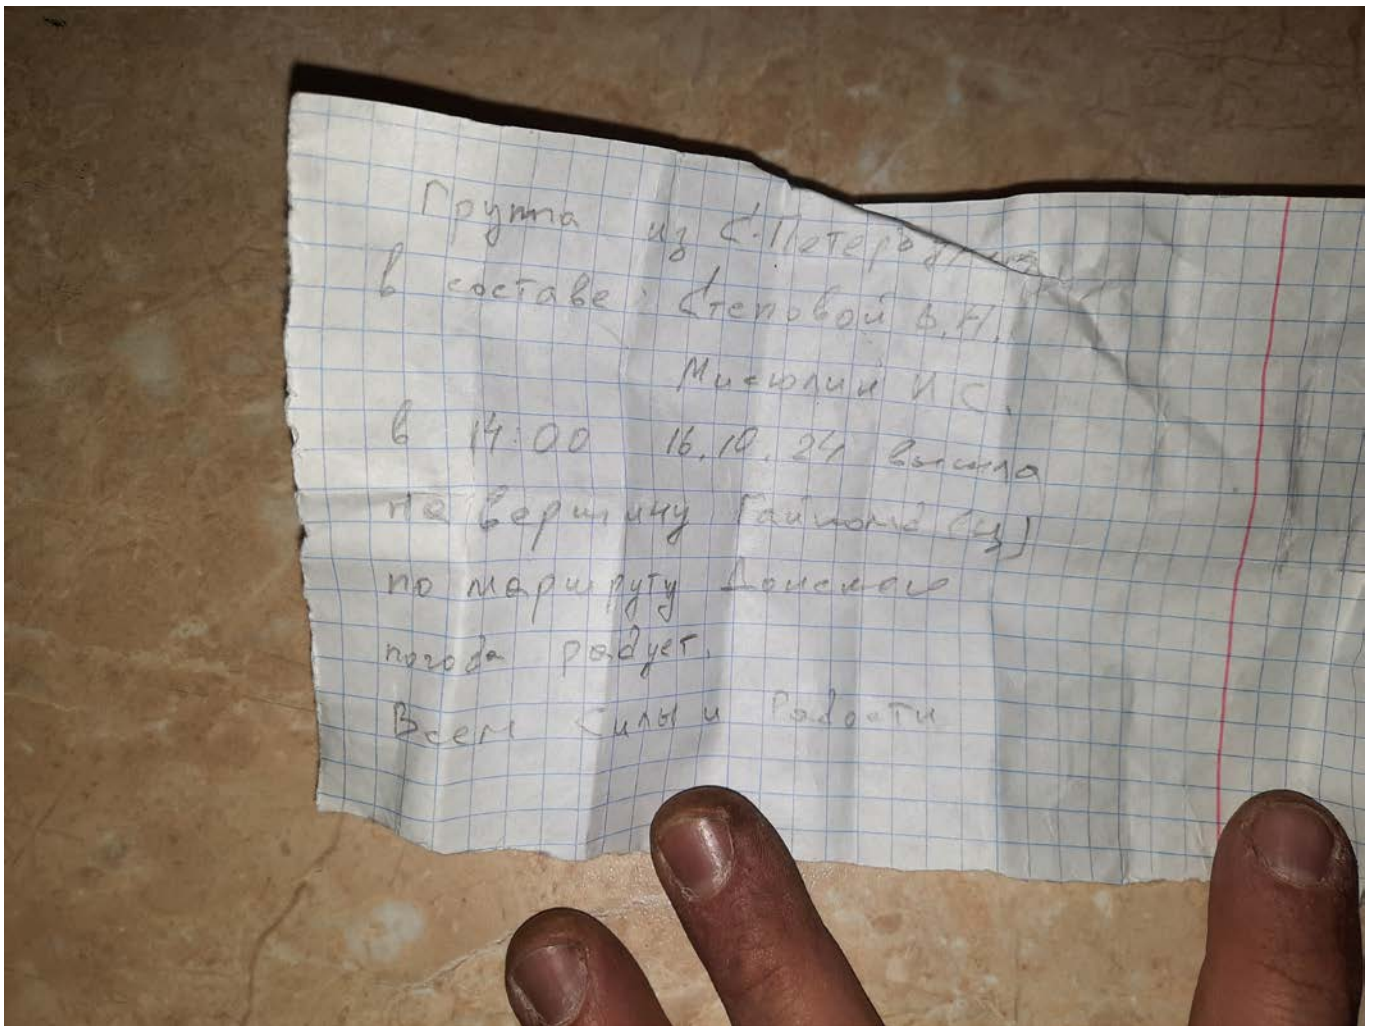 Группа из С.Петербурга
в составе: Степовой В.Н.
Мисюлин И С.
в 14:00 16.10.24 вышла
на вершину Гайкомд (Ц)
по маршруту Донского
погода радует.
Всем Силы и Радости